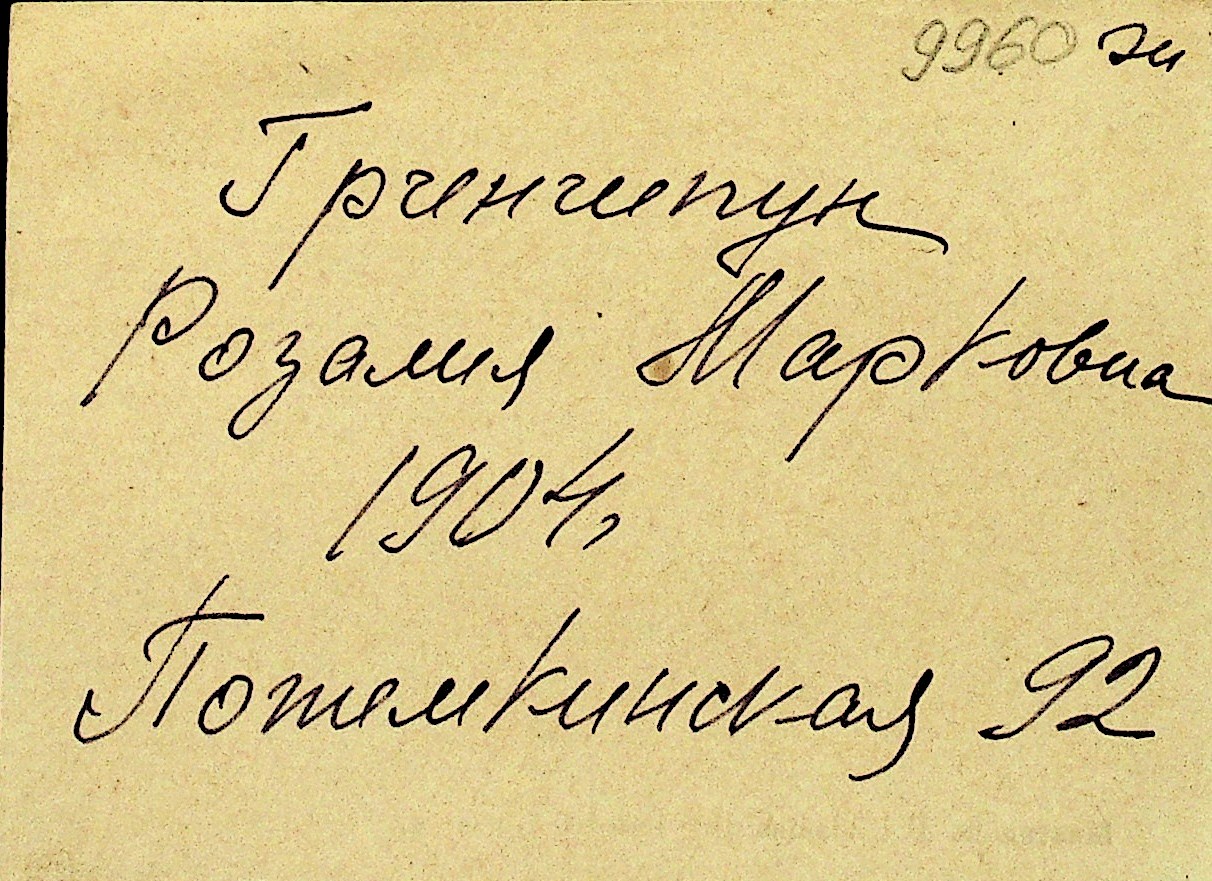 9960 эи
Гринчепун
Розалия Марковна
1904,
Потемкинская 92